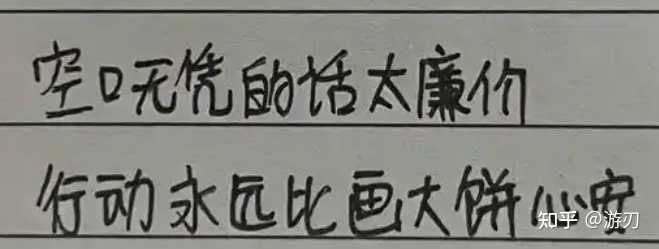 空口无凭的话太廉价
行动永远比画大饼心安
知乎 @游刃